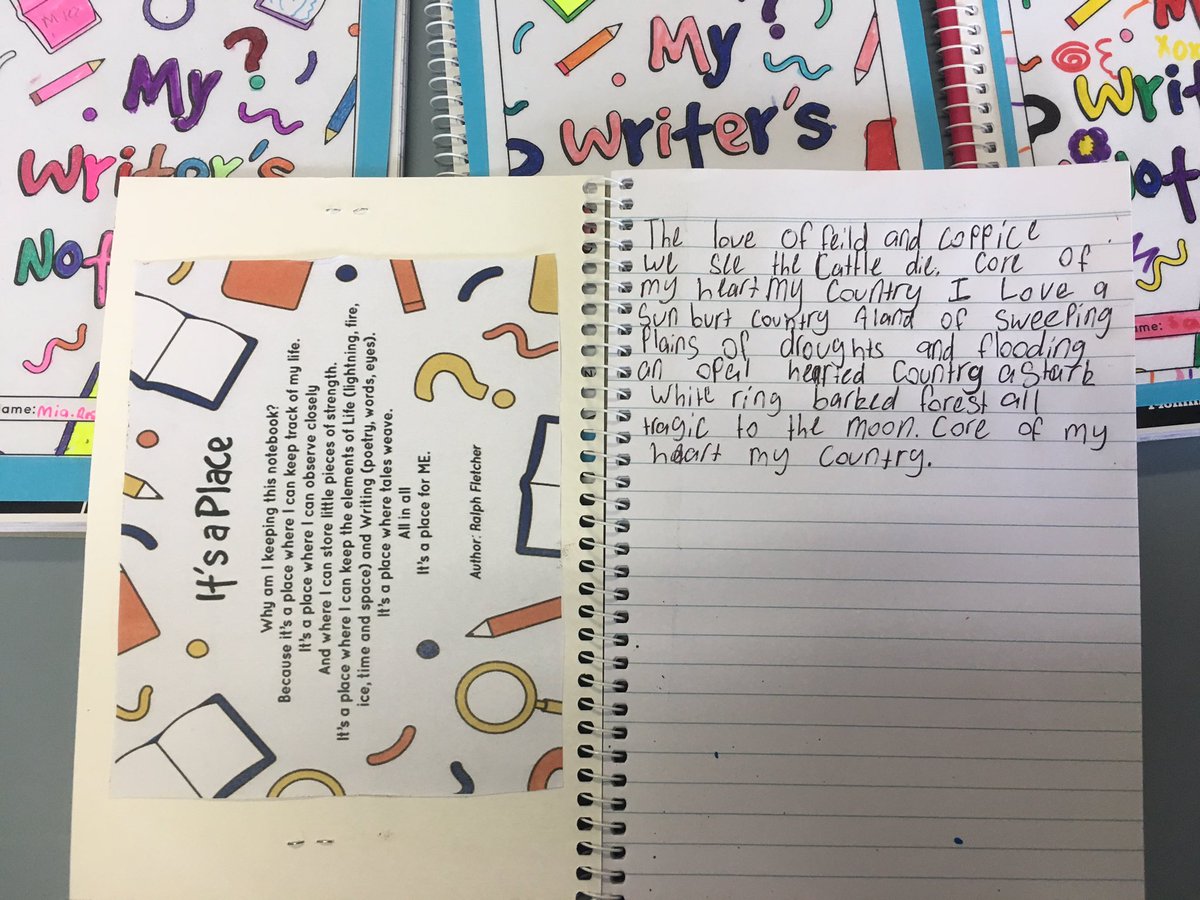 My
Writer's
Not
Name: Mia
My
Writer's
My
xox
Writ
Not
ame:
It's a Place
Why am I keeping this notebook?
Because it's a place where I can keep track of my life.
It's a place where I can observe closely
And where I can store little pieces of strength.
It's a place where I can keep the elements of Life (lightning, fire,
ice, time and space) and Writing (poetry, words, eyes).
It's a place where tales weave.
All in all
It's a place for ME.
Author: Ralph Fletcher
The love of feild and coppice
we see the cattle die. Core of
my heart my country I Love a
Sun burt country A land of sweeping
Plains of droughts and flooding
an opal hearted country a stark
white ring barked forest all
tragic to the moon. Core of my
heart my country.